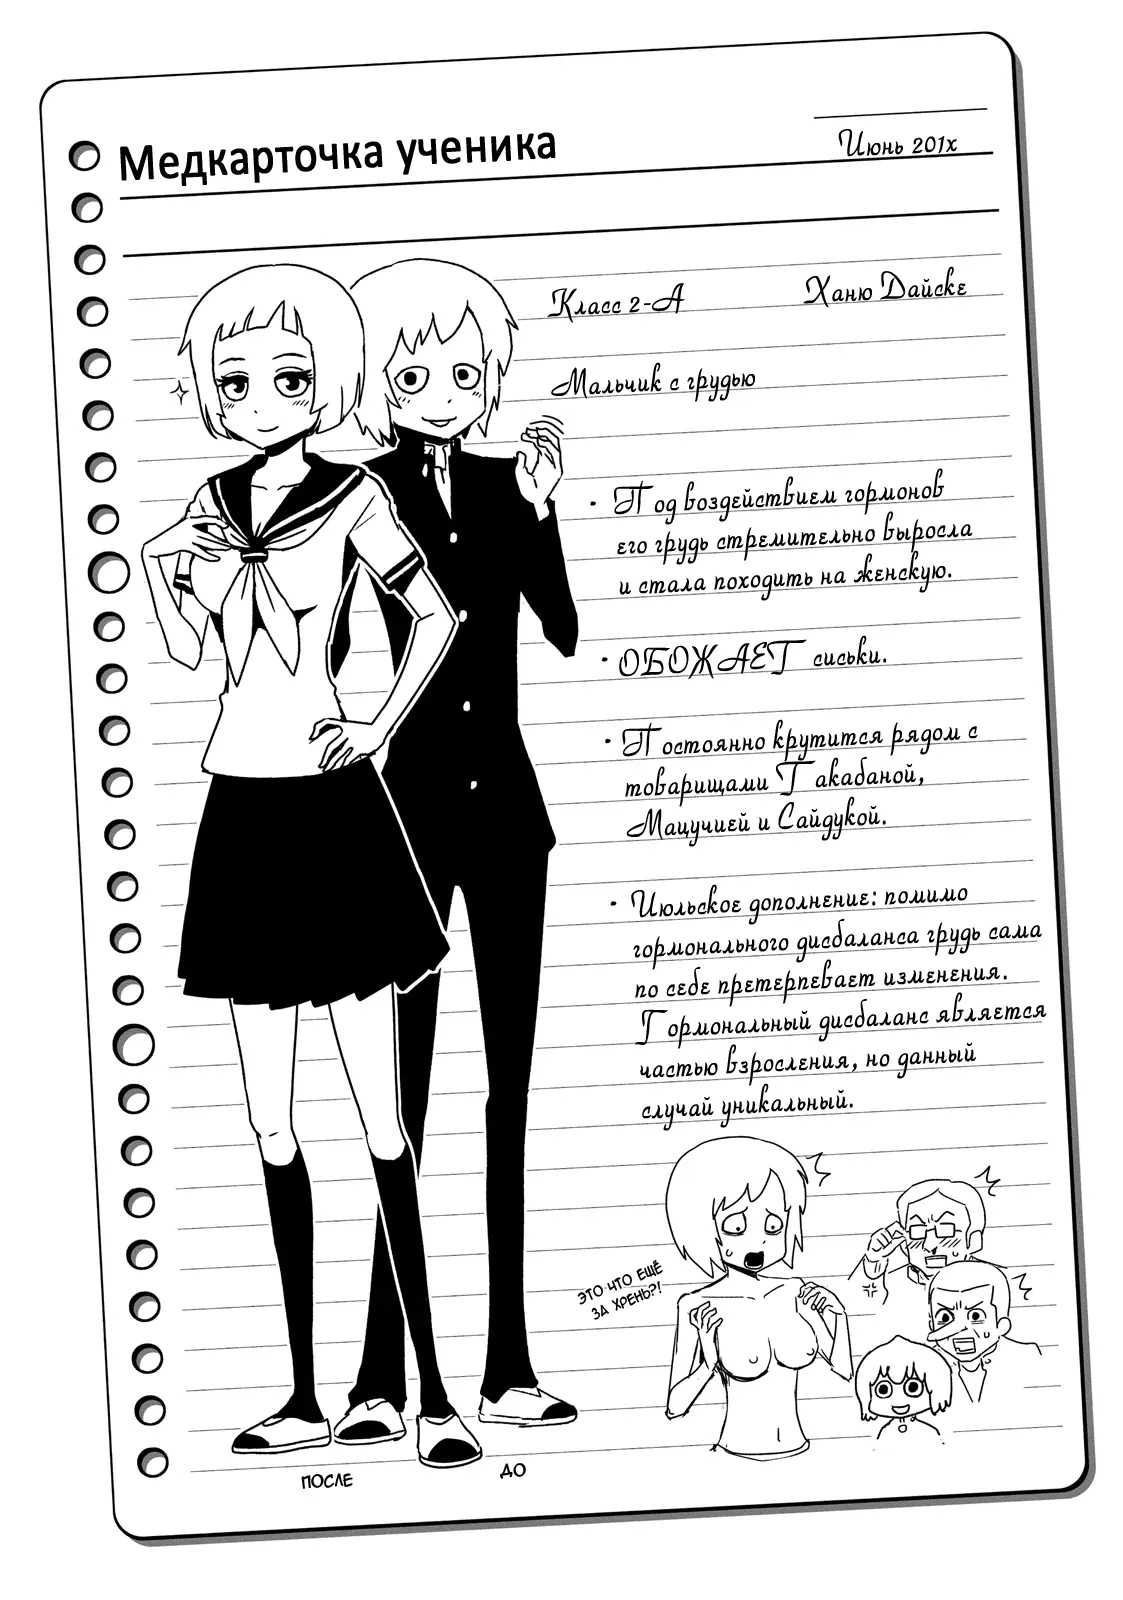 Медкарточка ученика
Июнь 201x
Класс 2-А
Ханю Дайске
Мальчик с грудью
· Под воздействием гормонов
его грудь стремительно выросла
и стала походить на женскую.
· ОБОЖАЕТ сиськи.
· Постоянно крутится рядом с
товарищами Такабаной,
Мацучией и Сайдукой.
· Июльское дополнение: помимо
гормонального дисбаланса грудь сама
по себе претерпевает изменения.
Гормональный дисбаланс является
частью взросления, но данный
случай уникальный.
ЭТО ЧТО ЕЩЁ
ЗА ХРЕНЬ?!
ПОСЛЕ
ДО